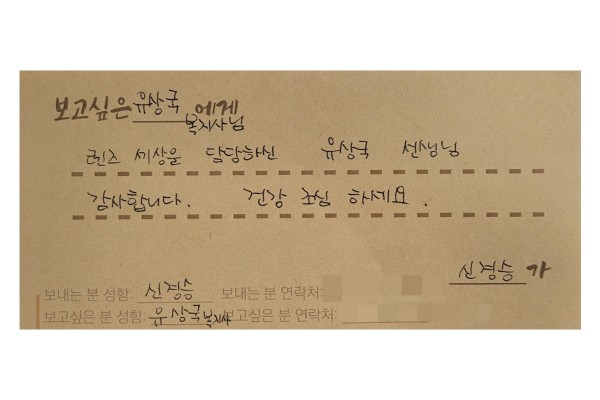 보고싶은 유상국 에게
복지사님
렌즈 세상을 담당하신 유상국 선생님
감사합니다. 건강 조심 하세요.
신경승 가
보내는 분 성함: 신경승 보내는 분 연락처:
보고싶은 분 성함: 유상국 복지사 보고싶은 분 연락처: